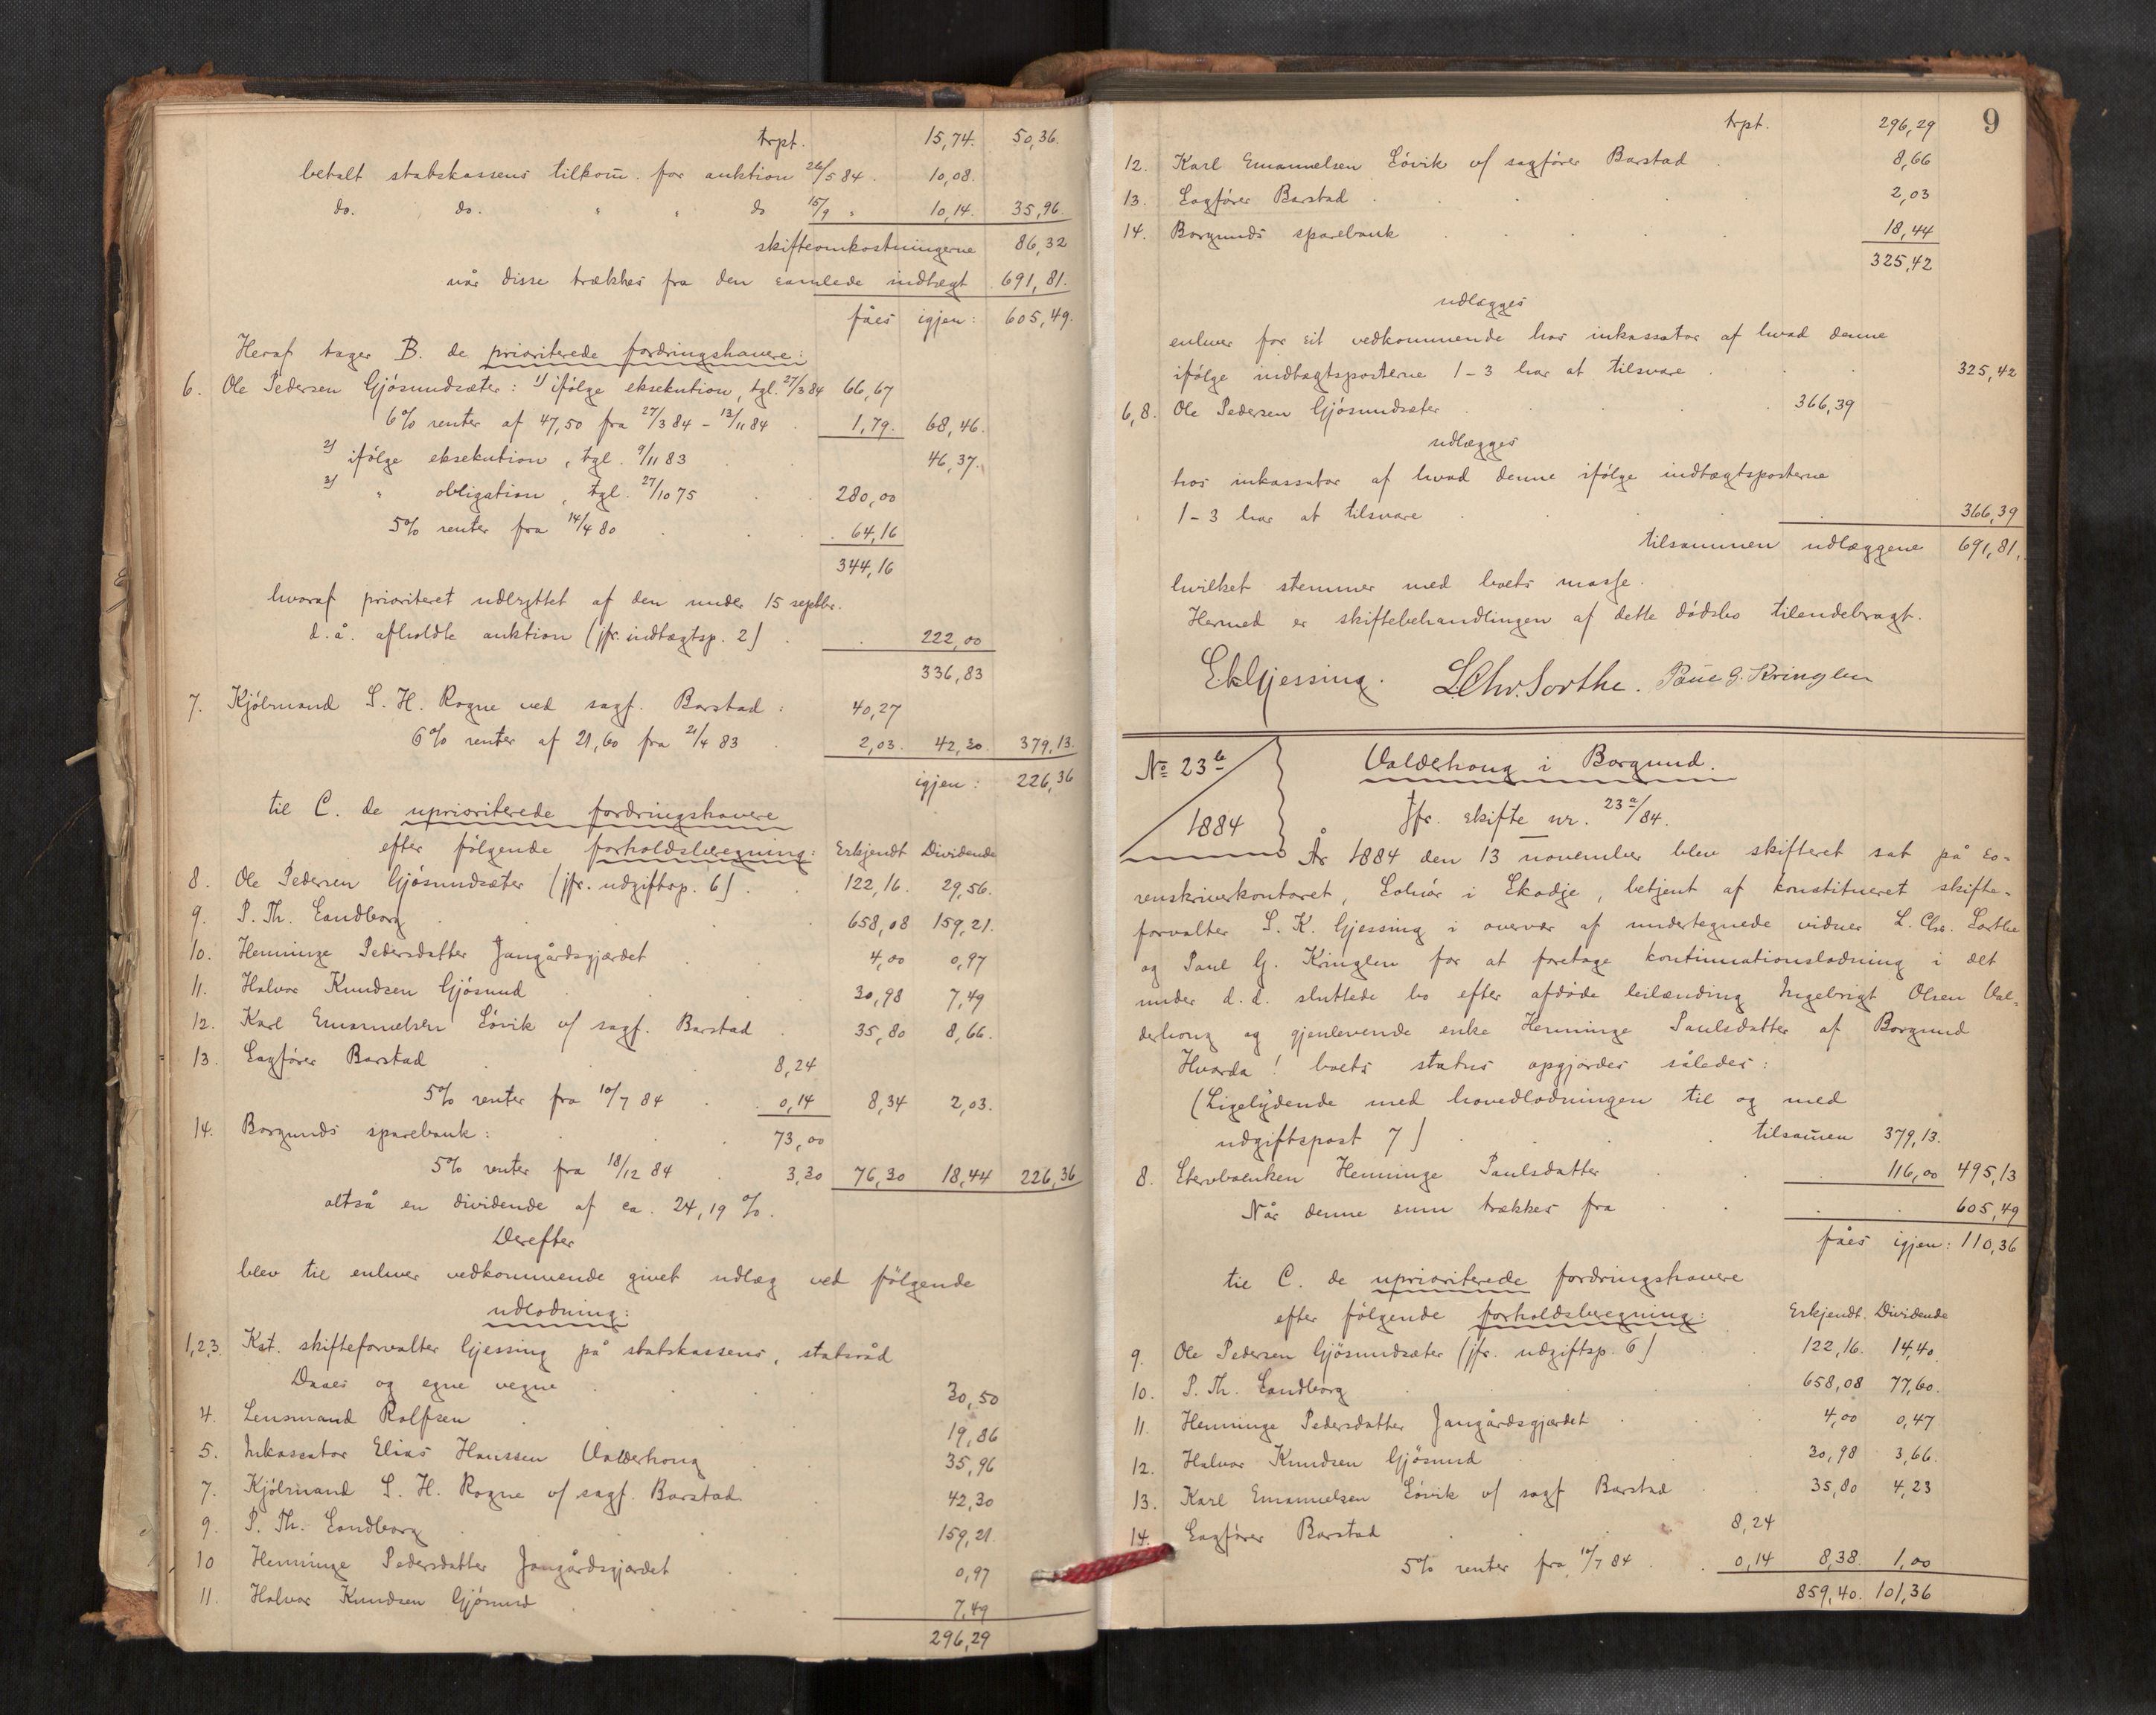 trpt. 15,74. 50,36.
betalt statskassens tilkom̄. for auktion 26/5 84. 10,08.
do. do. " " do 15/9 " 10,14. 35,96.
skifteomkostningerne 86,32
når disse trækkes fra den samlede indtægt 691,81.
fåes igjen: 605,49.
Heraf tager B. de prioriterede fordringshavere:
6. Ole Pedersen Gjøsundsæter: 1) ifølge eksekution, tgl. 27/3 84 66,67
6% renter af 47,50 fra 27/3 84 - 13/11 84 1,79. 68,46.
2) ifølge eksekution, tgl. 9/11 83 46,37.
3) " obligation, tgl. 27/10 75 280,00
5% renter fra 14/4 80 64,16
344,16
hvoraf prioriteret udbyttet af den under 15 septbr.
d.å. afholdte auktion (jfr. indtægtsp. 2) 222,00
336,83
7. Kjøbmand S. H. Rogne ved sagf. Barstad: 40,27
6% renter af 21,60 fra 21/4 83 2,03. 42,30. 379,13.
igjen: 226,36
til C. de uprioriterede fordringshavere
efter følgende forholdsberegning: Erkjendt Dividende
8. Ole Pedersen Gjøsundsæter (jfr. udgiftsp. 6). 122,16. 29,56.
9. P. Th. Sandborg 658,08 159,21.
10. Henninge Pedersdatter Jangårdsgjærdet 4,00 0,97
11. Halvor Knudsen Gjøsund 30,98 7,49
12. Karl Emanuelsen Løvik v/ sagf. Barstad 35,80 8,66.
13. Sagfører Barstad 8,24
5% renter fra 10/7 84 0,14 8,34 2,03.
14. Borgunds sparebank: 73,00
5% renter fra 18/12 84 3,30 76,30 18,44 226,36
altså en dividende af ca. 24,19 %.
Derefter
blev til enhver vedkommende givet udlæg ved følgende
udlodning:
1,2,3. Kst. skifteforvalter Gjessing på statskassens, statsråd
Daaes og egne vegne 30,50
4. Lensmand Rolfsen 19,86
5. Inkassator Elias Hanssen Valderhoug 35,96
7. Kjøbmand S. H. Rogne v/ sagf. Barstad 42,30
9. P. Th. Sandborg 159,21.
10 Henninge Pedersdatter Jangårdsgjærdet 0,97
11. Halvor Knudsen Gjøsund 7,49
296,29
9
trpt. 296,29
12. Karl Emanuelsen Løvik v/ sagfører Barstad 8,66
13. Sagfører Barstad 2,03
14. Borgunds sparebank 18,44
325,42
udlægges
enhver for sit vedkommende hos inkassator af hvad denne
ifølge indtægtsposterne 1-3 har at tilsvare 325,42
6,8. Ole Pedersen Gjøsundsæter 366,39
udlægges
hos inkassator af hvad denne ifølge indtægtsposterne
1-3 har at tilsvare 366,39
tilsammen udlæggene 691,81.
hvilket stemmer med boets masse.
Hermed er skiftebehandlingen af dette dødsbo tilendebragt.
SKGjessing. L.Chr.Sorthe. Paul G. Kringlen
No 23 b
1884
Valderhoug i Borgund.
Jfr. skifte nr. 23a/84.
År 1884 den 13 november blev skifteret sat på so-
renskriverkontoret, Solnør i Skodje, betjent af konstitueret skifte-
forvalter S. K. Gjessing i overvær af undertegnede vidner L. Chr. Sorthe
og Paul G. Kringlen for at foretage kontinuationslodning i det
under d. d. sluttede bo efter afdøde leilænding Ingebrigt Olsen Val-
derhoug og gjenlevende enke Henninge Paulsdatter af Borgund
Hvorda! boets status opgjordes således:
(Ligelydende med hovedlodningen til og med
udgiftspost 7) tilsam̄en 379,13.
8. Stervboenken Henninge Paulsdatter 116,00 495,13
Når denne sum trækkes fra 605,49
fåes igjen: 110,36
til C. de uprioriterede fordringshavere
efter følgende forholdsberegning: Erkjendt. Dividende
9. Ole Pedersen Gjøsundsæter (jfr. udgiftsp. 6) 122,16. 14,40.
10. P. Th. Sandborg 658,08 77,60.
11. Henninge Pedersdatter Jangårdsgjærdet 4,00 0,47
12. Halvor Knudsen Gjøsund 30,98 3,66.
13. Karl Emanuelsen Løvik v/ sagf Barstad 35,80 4,23
14. Sagfører Barstad 8,24
5% renter fra 10/7 84 0,14 8,38. 1,00
859,40. 101,36